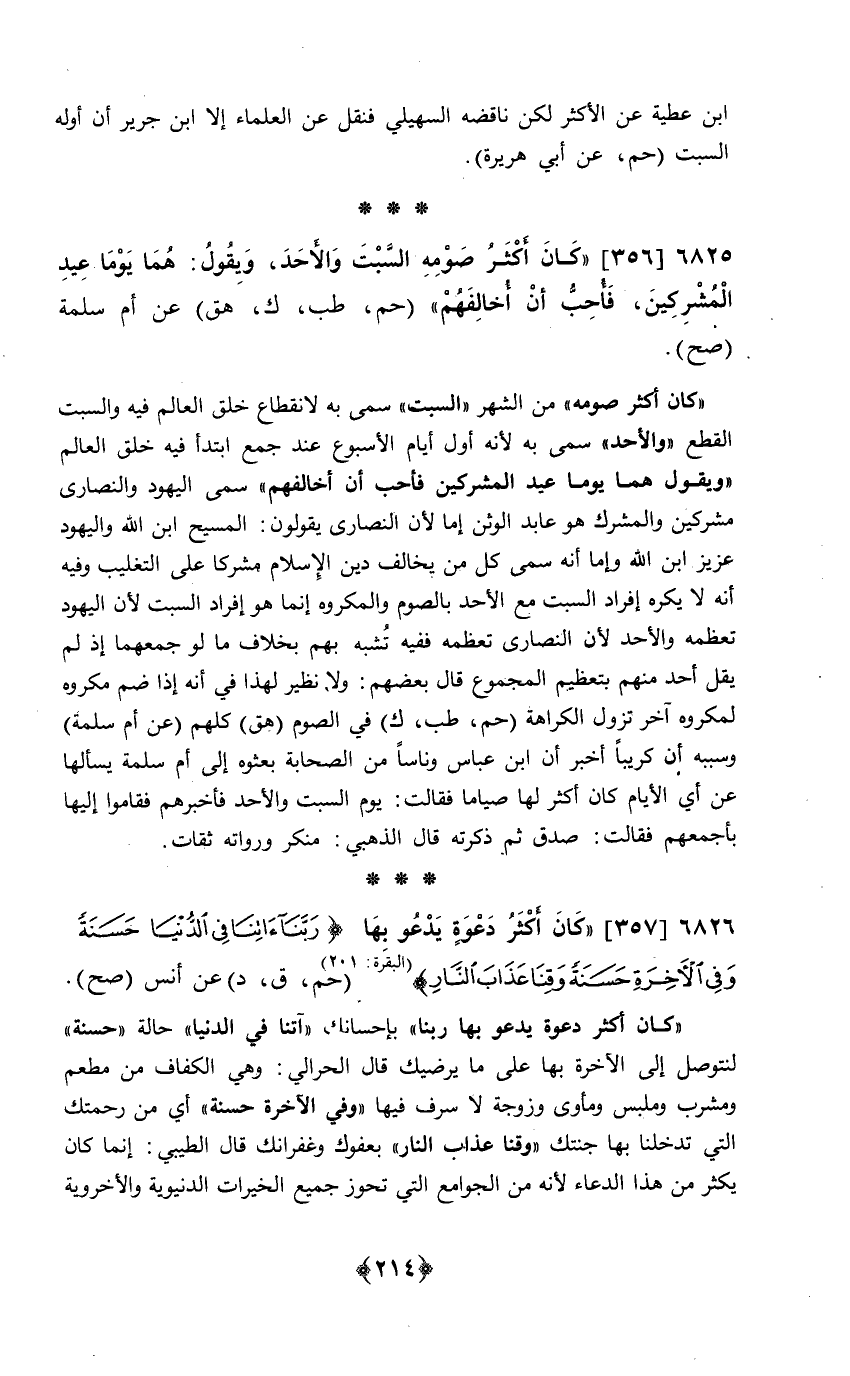 ابن عطية عن الأكثر لكن ناقضه السهيلي فنقل عن العلماء إلا ابن جرير أن أوله
السبت (حم، عن أبي هريرة).
* * *
٦٨٢٥ [٣٥٦] «كَانَ أَكْثَرُ صَوْمِهِ السَّبْتَ وَالأَحَدَ، وَيقُولُ: هُمَا يَوْمَا عِيدِ
الْمُشْرِكِينَ، فَأُحِبُّ أنْ أُخالِفَهُمْ» (حم، طب، ك، هق) عن أم سلمة
(صح).
«كان أكثر صومه» من الشهر «السبت» سمى به لانقطاع خلق العالم فيه والسبت
القطع «والأحد» سمى به لأنه أول أيام الأسبوع عند جمع ابتدأ فيه خلق العالم
«ويقول هما يوما عيد المشركين فأحب أن أخالفهم» سمى اليهود والنصارى
مشركين والمشرك هو عابد الوثن إما لأن النصارى يقولون: المسيح ابن الله واليهود
عزيز ابن الله وإما أنه سمى كل من يخالف دين الإسلام مشركا على التغليب وفيه
أنه لا يكره إفراد السبت مع الأحد بالصوم والمكروه إنما هو إفراد السبت لأن اليهود
تعظمه والأحد لأن النصارى تعظمه ففيه تُشبه بهم بخلاف ما لو جمعهما إذ لم
يقل أحد منهم بتعظيم المجموع قال بعضهم: ولا نظير لهذا في أنه إذا ضم مكروه
لمكروه آخر تزول الكراهة (حم، طب، ك) في الصوم (هق) كلهم (عن أم سلمة)
وسببه أن كريباً أخبر أن ابن عباس وناساً من الصحابة بعثوه إلى أم سلمة يسألها
عن أي الأيام كان أكثر لها صياما فقالت: يوم السبت والأحد فأخبرهم فقاموا إليها
بأجمعهم فقالت: صدق ثم ذكرته قال الذهبي: منكر ورواته ثقات.
* * *
٦٨٢٦ [٣٥٧] «كَانَ أَكْثَرُ دَعْوَةٍ يَدْعُو بِهَا ﴿رَبَّنَآ ءَاتِنَا فِى ٱلدُّنْيَا حَسَنَةً
وَفِى ٱلْأَخِرَةِ حَسَنَةً وَقِنَا عَذَابَ ٱلنَّارِ﴾ (البقرة: ٢٠١) (حم، ق، د) عن أنس (صح).
«كان أكثر دعوة يدعو بها ربنا» بإحسانك «آتنا في الدنيا» حالة «حسنة»
لنتوصل إلى الآخرة بها على ما يرضيك قال الحرالي: وهي الكفاف من مطعم
ومشرب وملبس ومأوى وزوجة لا سرف فيها «وفي الآخرة حسنة» أي من رحمتك
التي تدخلنا بها جنتك «وقنا عذاب النار» بعفوك وغفرانك قال الطيبي: إنما كان
يكثر من هذا الدعاء لأنه من الجوامع التي تحوز جميع الخيرات الدنيوية والأخروية
﴿٢١٤﴾